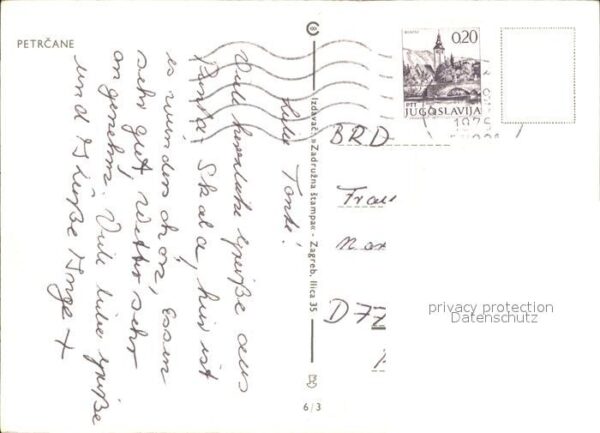 PETRČANE
Liebe Tante!
Viele herzliche Grüße aus
Punta Skala, hier ist
es wunderschön, Essen
sehr gut, Wetter sehr
angenehm. Viele liebe Grüße
und Küße Inge +
Izdavač: »Zadružna štampa« - Zagreb, Ilica 35
6/3
0.20
PTT
JUGOSLAVIJA
BRD
Frau
D 77
privacy protection
Datenschutz